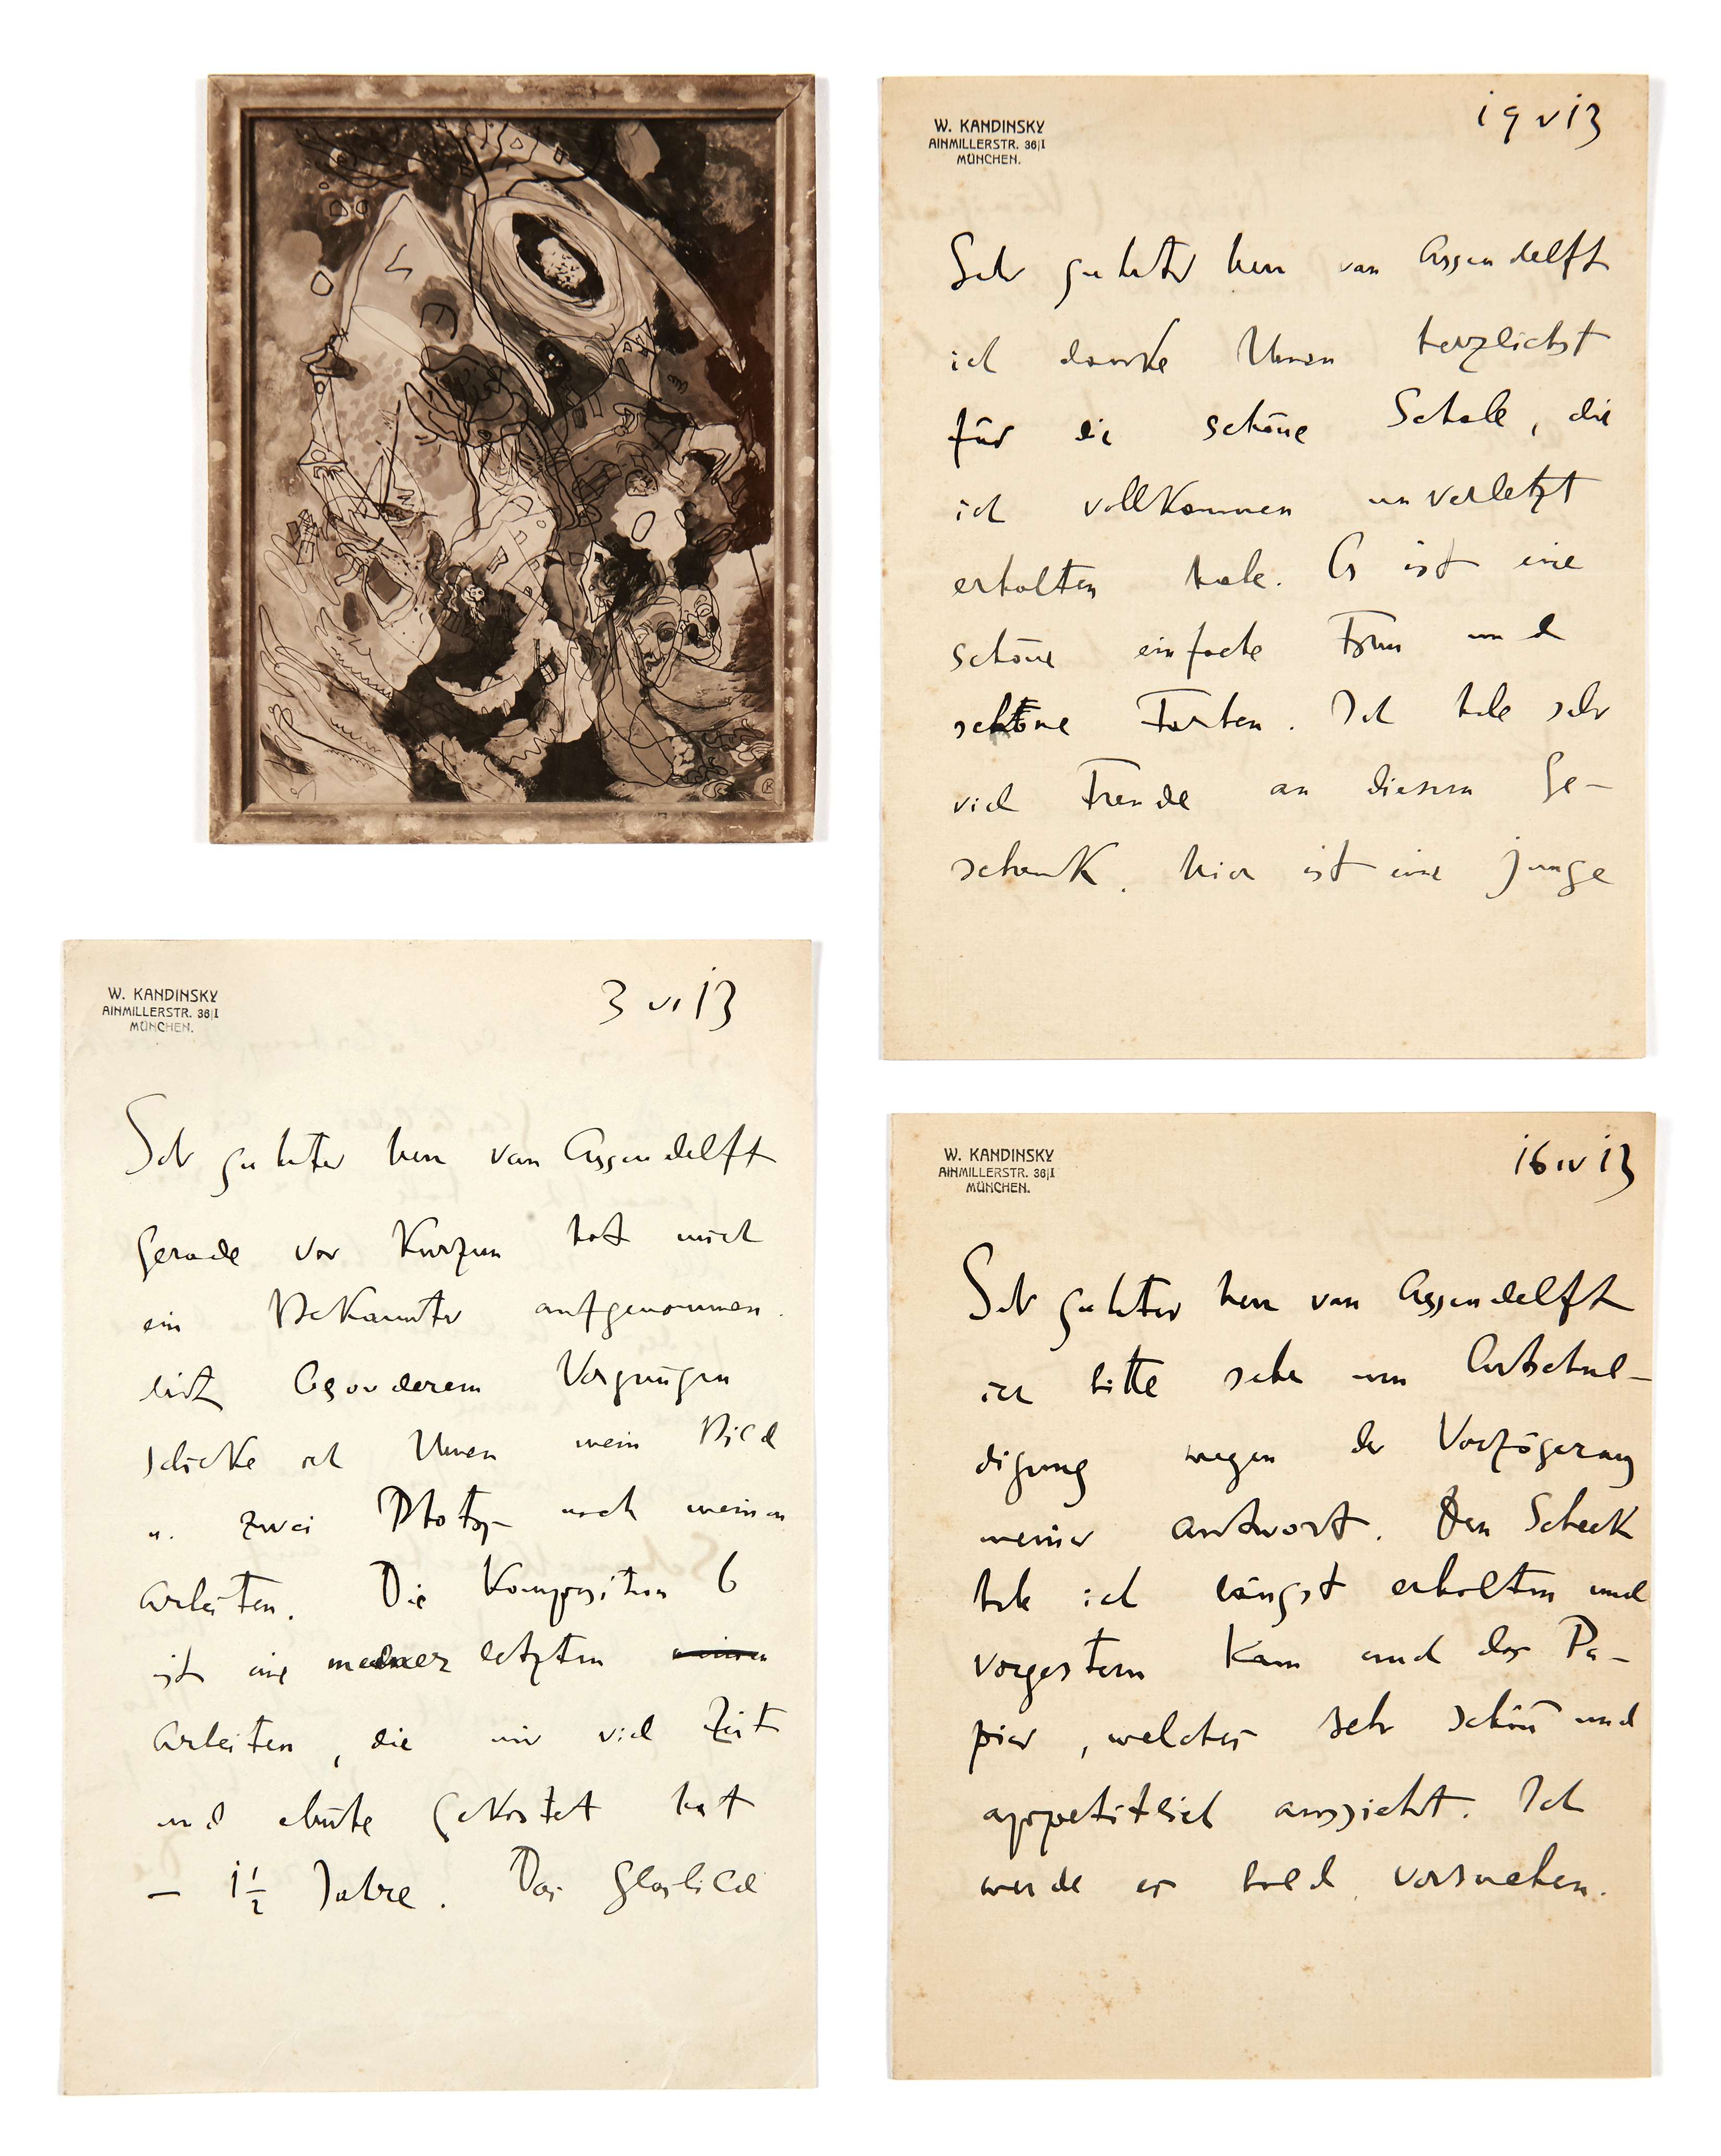 W. KANDINSKY
AINMILLERSTR. 36|I
MÜNCHEN.
19 V 13
Sehr geehrter Herr van Assendelft
ich danke Ihnen herzlichst
für die schöne Schale, die
ich vollkommen unverletzt
erhalten habe. Es ist eine
schöne einfache Form und
schöne Farben. Ich habe sehr
viel Freude an diesem Ge-
schenk. Hier ist eine junge
W. KANDINSKY
AINMILLERSTR. 36|I
MÜNCHEN.
3 VI 13
Sehr geehrter Herr van Assendelft
gerade vor Kurzem hat mich
ein Bekannter aufgenommen.
Mit besonderem Vergnügen
schicke ich Ihnen mein Bild
u. zwei Photos nach meinen
Arbeiten. Die Komposition 6
ist eine meiner letzten
Arbeiten, die mir viel Zeit
und Mühe gekostet hat
— 1½ Jahre. Das Glasbild
W. KANDINSKY
AINMILLERSTR. 36|I
MÜNCHEN.
16 IV 13
Sehr geehrter Herr van Assendelft
ich bitte sehr um Entschul-
digung wegen der Verzögerung
meiner Antwort. Den Scheck
habe ich längst erhalten und
vorgestern kam auch das Pa-
pier, welches sehr schön und
appetitlich aussieht. Ich
werde es bald versuchen.